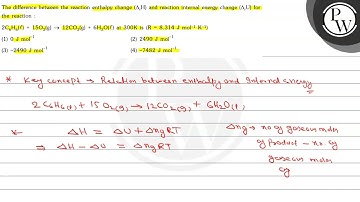 The difference between the reaction enthalpy change (ΔrH) and reaction internal energy change (ΔrU) for
the reaction :
2C₆H₆(ℓ) + 15O₂(g) ⟶ 12CO₂(g) + 6H₂O(ℓ) at 300K is (R = 8.314 J mol⁻¹ K⁻¹)
(1) 0 J mol⁻¹ (2) 2490 J mol⁻¹
(3) –2490 J mol⁻¹ (4) –7482 J mol⁻¹
* Key concept → Relation between enthalpy and Internal energy
2C₆H₆(l) + 15O₂(g) → 12CO₂(g) + 6H₂O(l)
* ΔH = ΔU + ΔngRT
⇒ ΔH – ΔU = ΔngRT
Δng → no of gaseous moles
of product – no. of
gaseous moles
of